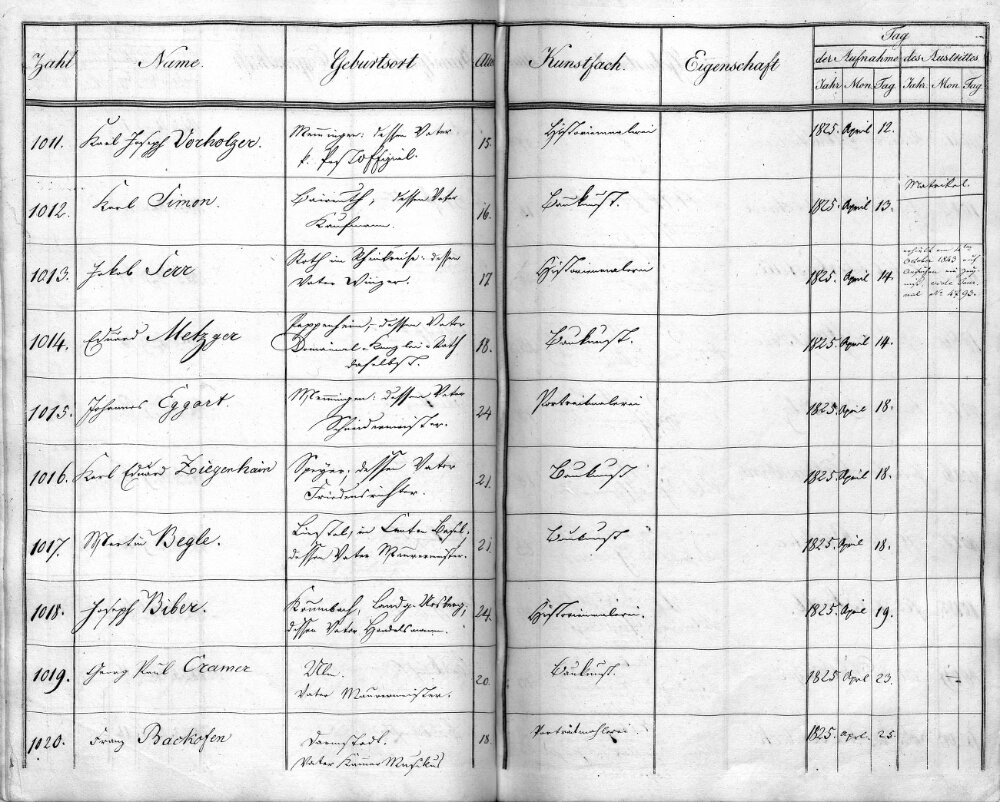 Tag
Zahl Name. Geburtsort Alter Kunstfach. Eigenschaft der Aufnahme des Austrittes
Jahr Mon. Tag Jahr. Mon. Tag
1011. Karl Joseph Vorholzer. Memmingen: dessen Vater 15. Historienmalerei 1825. April 12.
k. Postoffizial.
Matrikel.
1012. Karl Simon. Baireuth, dessen Vater 16. Baukunst. 1825. April 13.
Kaufmann.
1013. Jakob Serr Roth im Rheinkreise: dessen 17 Historienmalerei 1825. April 14.
Vater Winzer.
October 1843 auf
1014. Eduard Metzger Pappenheim, dessen Vater 18. Baukunst. 1825. April 14.
Domainel-Kanzlei-Rath
daselbst.
1015. Johannes Eggart. Memmingen: dessen Vater 24 Portraitmalerei 1825. April 18.
Schneidermeister.
1016. Karl Eduard Ziegenhain Speyer, dessen Vater 21. Baukunst 1825. April 18.
Friedensrichter.
1017. Martin Begle. Liestal, im Canton Basel, 21 Baukunst 1825. April 18.
dessen Vater Maurermeister.
1018. Joseph Biber. Krumbach, Landg. Ursberg, 24. Historienmalerei. 1825. April 19.
dessen Vater Handelsmann.
1019. Georg Paul Cramer Ulm. 20. Baukunst. 1825. April 23.
Vater Maurermeister.
1020. Franz Backofen Darmstadt. 18. Porträtmahlerei 1825. April. 25.
Vater Kammer Musikus